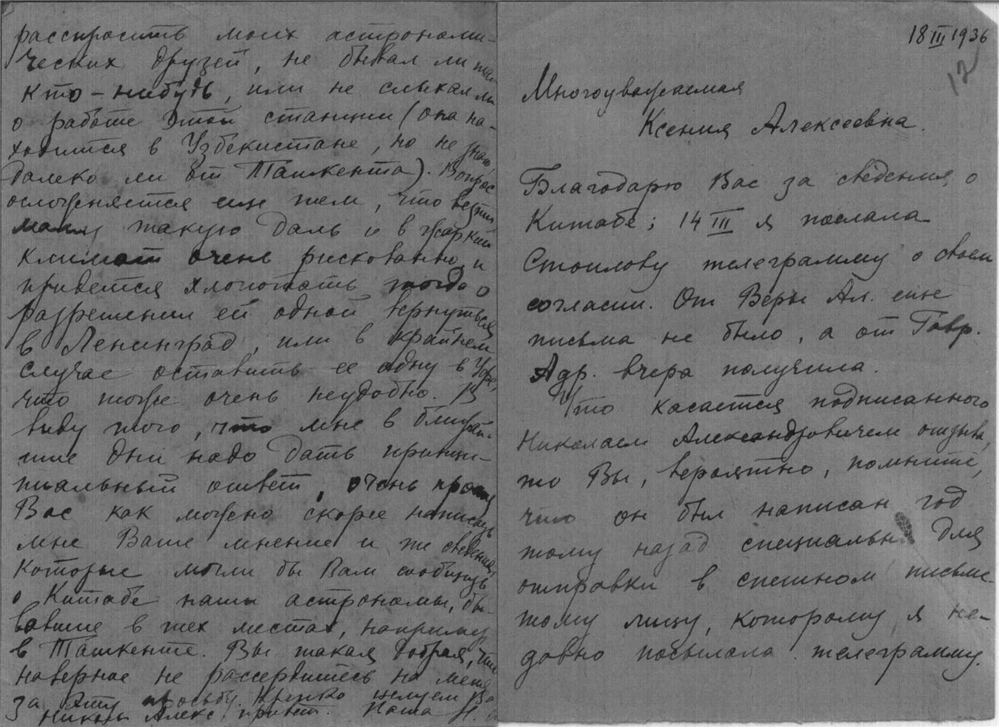 расспросить моих астрономи-
ческих друзей, не бывал ли там
кто-нибудь, или не слыхал ли
о работе этой станции (она на-
ходится в Узбекистане, но не знаю
далеко ли от Ташкента). Вопрос
осложняется еще тем, что везти
маму такую даль и в жаркий
климат очень рискованно, и
придется хлопотать тогда о
разрешении ей одной вернуться
в Ленинград, или в крайнем
случае оставить ее одну в Уфе,
что тоже очень неудобно. В
виду того, что мне в ближай-
шие дни надо дать принци-
пиальный ответ, очень прошу
Вас как можно скорее написать
мне Ваше мнение и те сведения,
которые могли бы Вам сообщить
о Китабе наши астрономы, бы-
вавшие в тех местах, например
в Ташкенте. Вы такая добрая, что
наверное не рассердитесь на меня
за эту просьбу. Крепко целуем Вас
Николу Алекс. привет. Наша
18 III 1936
12
Многоуважаемая
Ксения Алексеевна.
Благодарю Вас за сведения о
Китабе; 14 III я послала
Стоилову телеграмму о своем
согласии. От Веры Ал. еще
письма не было, а от Гавр.
Адр. вчера получила.
Что касается подписанного
Николаем Александровичем отзыва,
то Вы, вероятно, помните,
что он был написан год
тому назад специально для
отправки в спешном письме
тому лицу, которому я не-
давно посылала телеграмму.